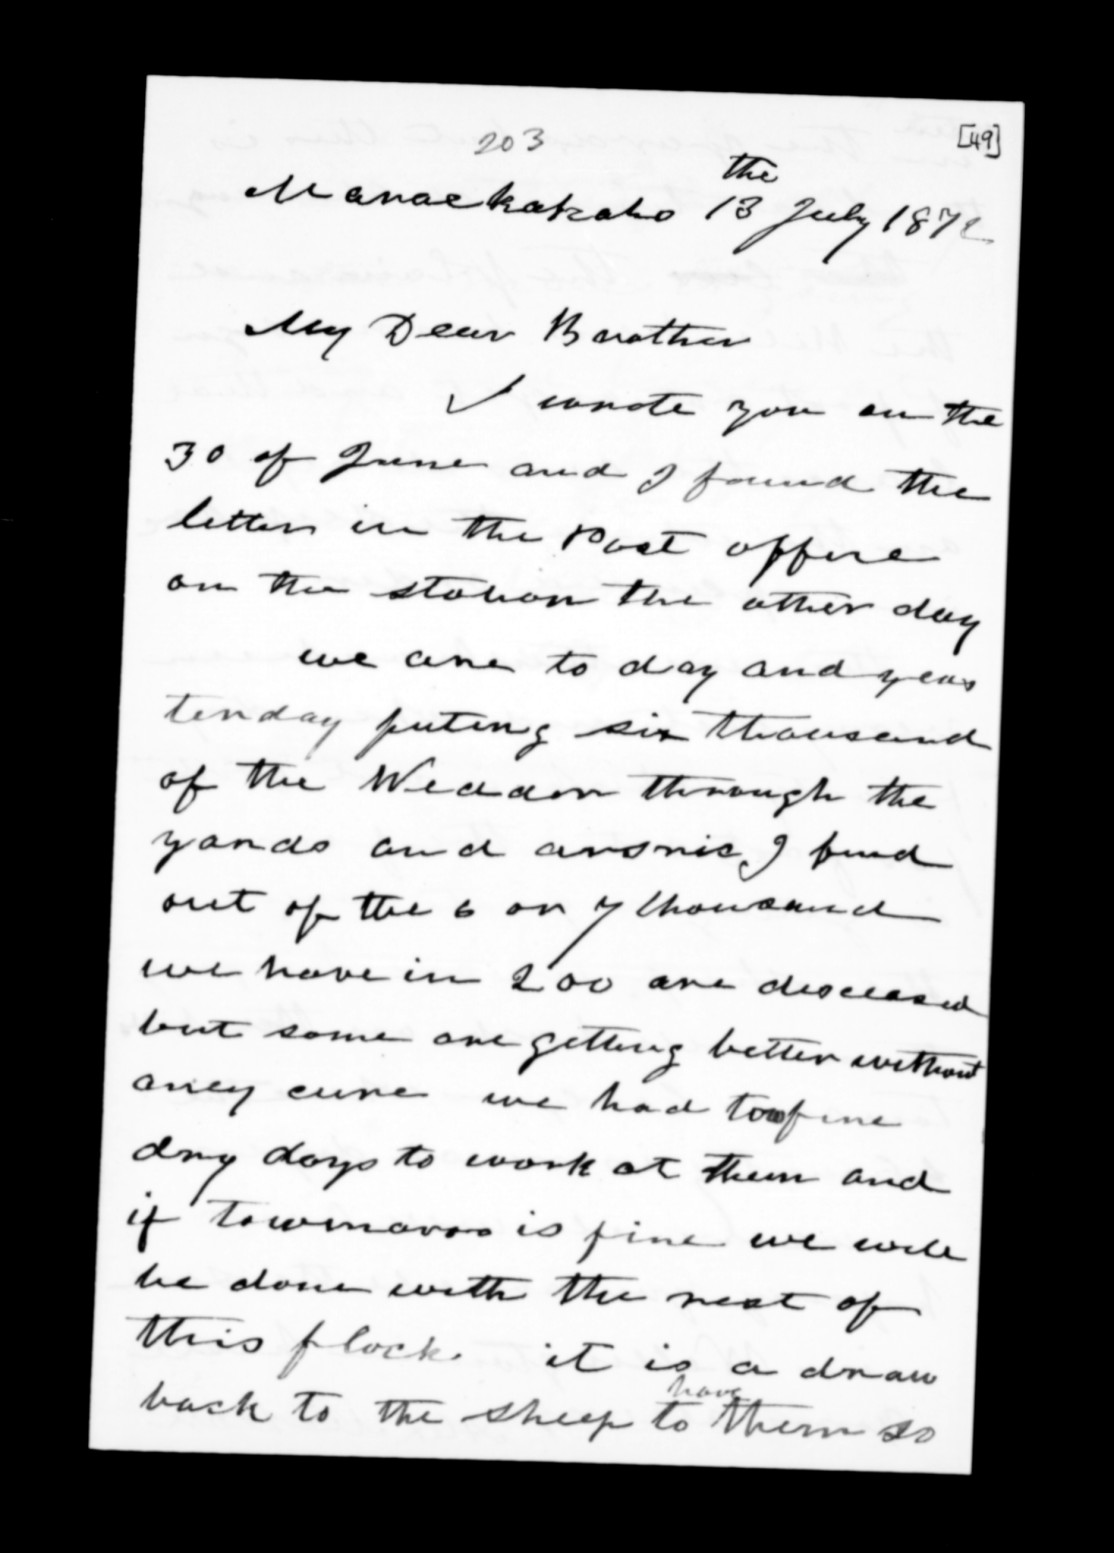 203
[49]
the
Maraekakaho 13 July 1872
My Dear Brother
I wrote you on the
30 of June and I found the
letter in the Post offire
on the station the other day
we are to day and yeas
terday puting six thousand
of the Weddor through the
yards and arsnic I find
out of the 6 or 7 thousand
we have in 200 are deseased
but some are getting better without
aney cure we had too fine
dry days to work at them and
if towmoroo is fine we will
be done with the rest of
this flock. it is a draw
have
back to the sheep to them so